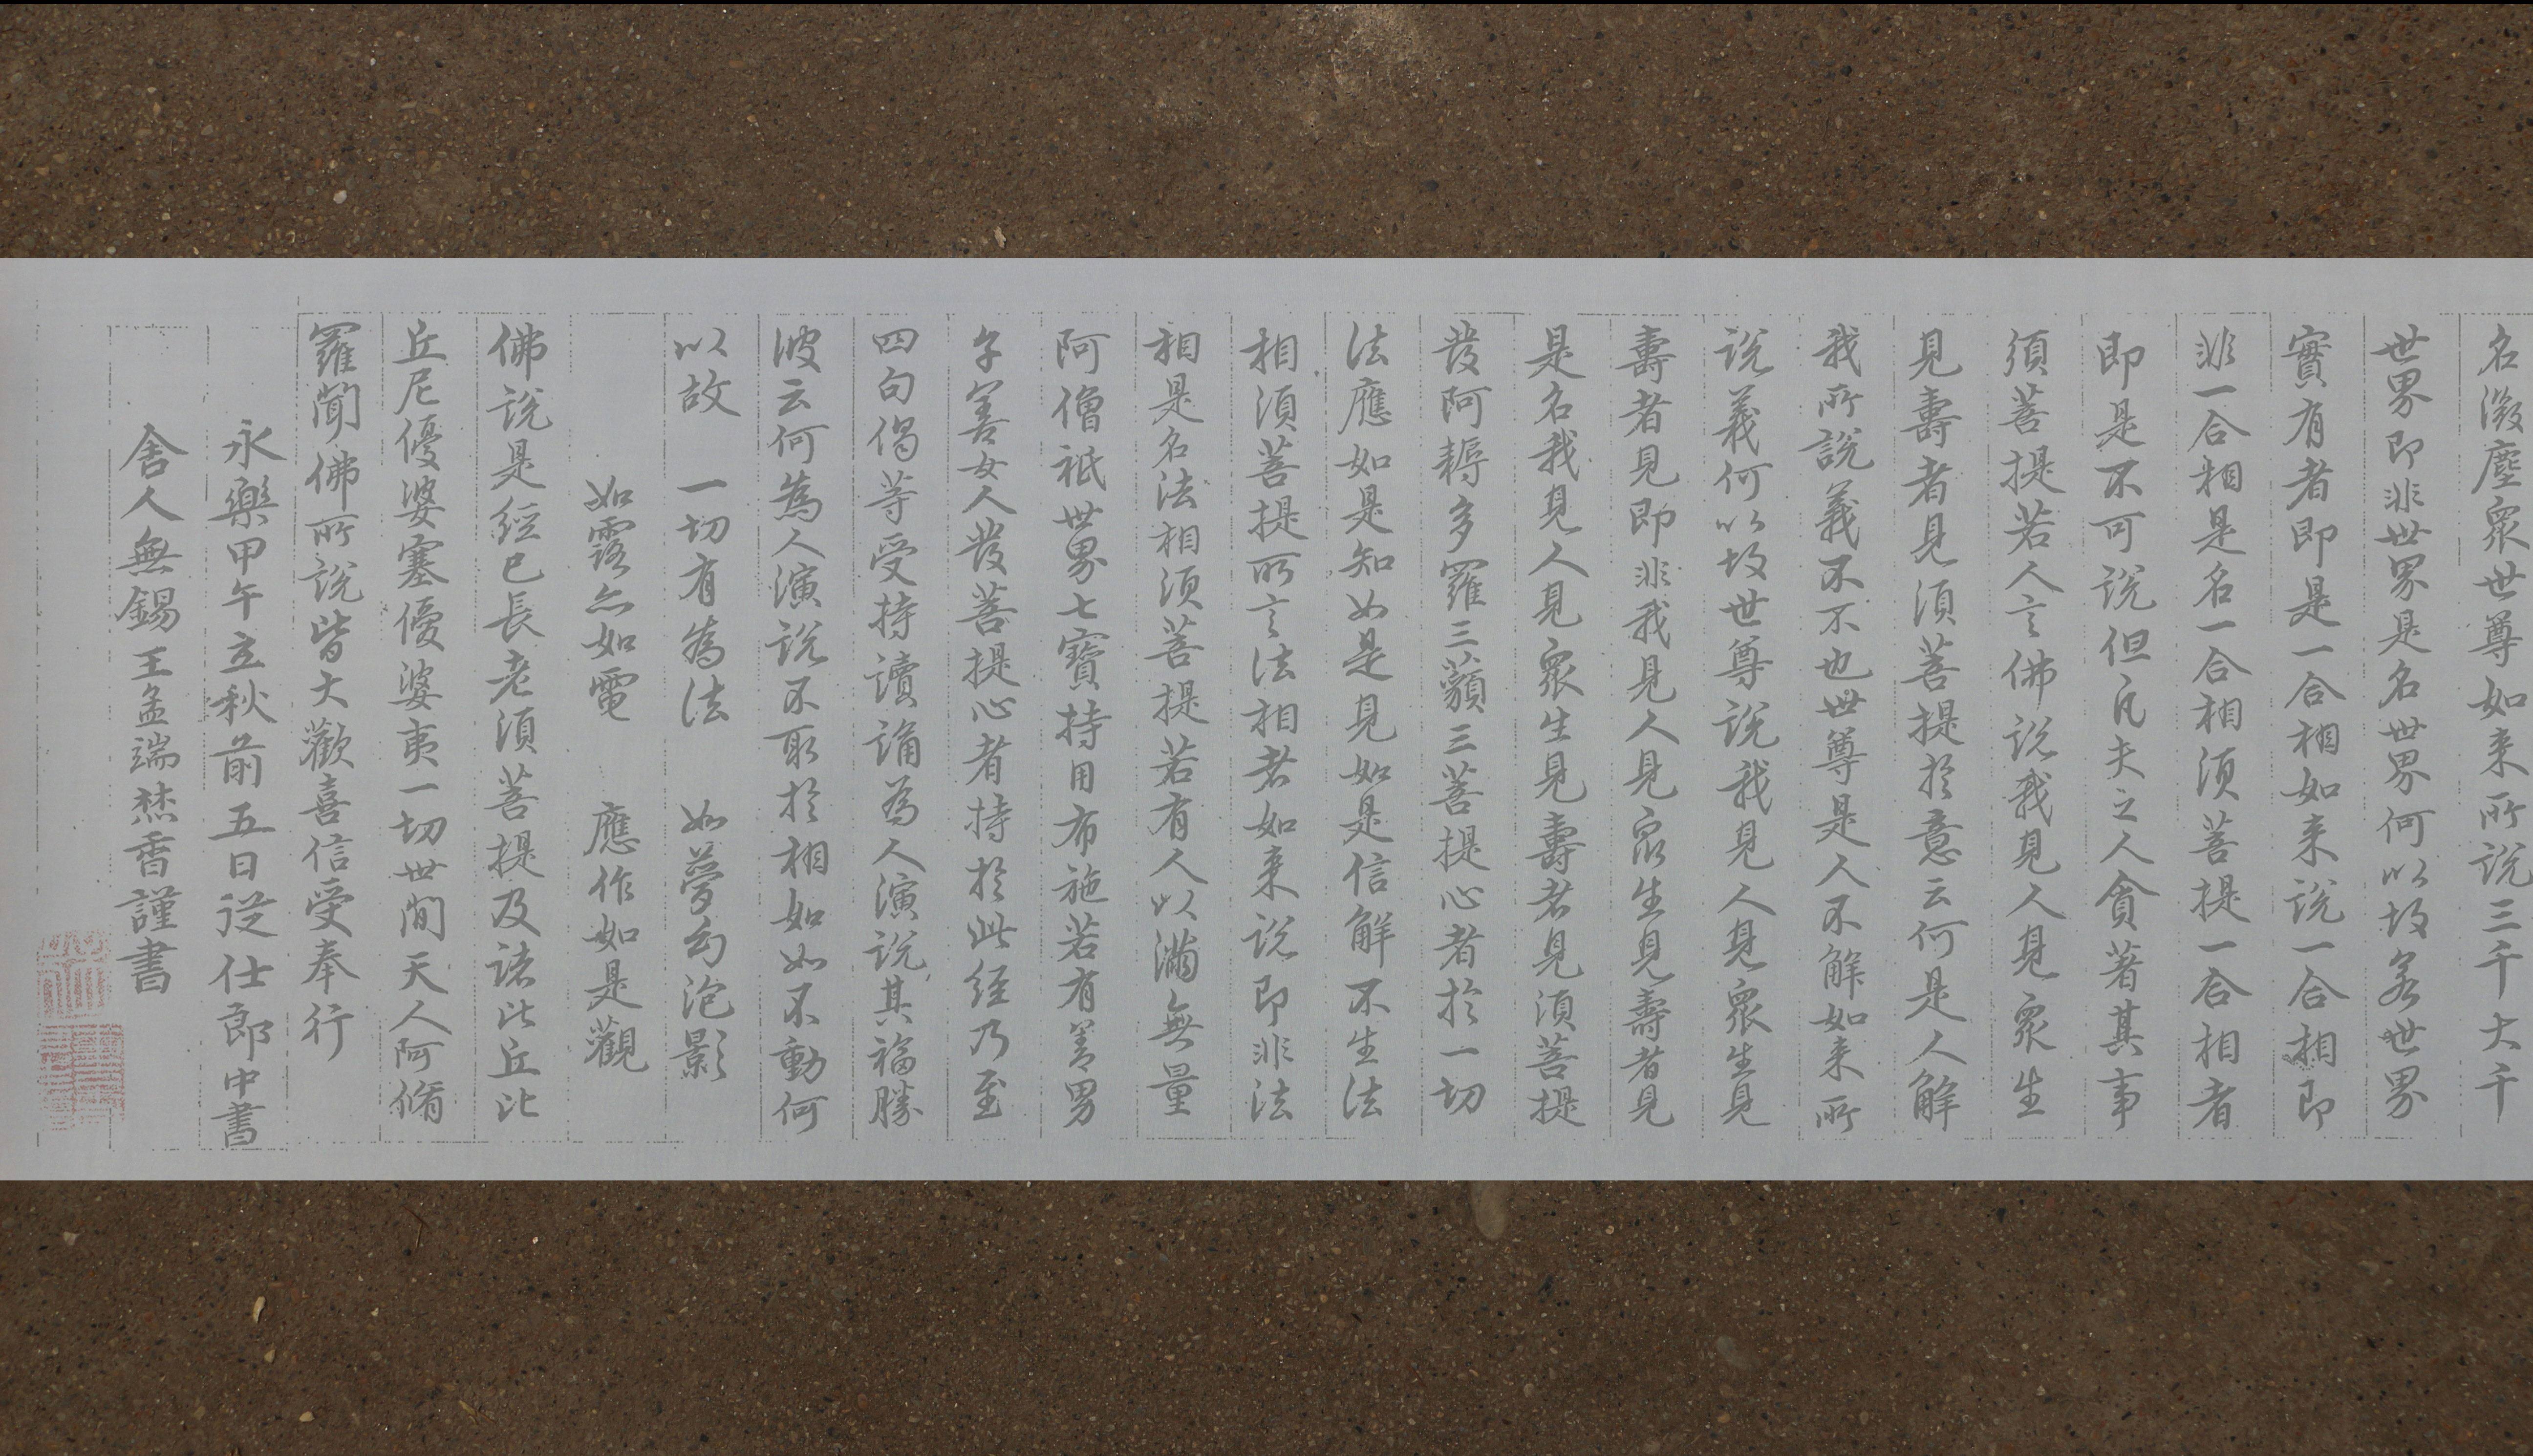 名微塵衆世尊如来所説三千大千
世界即非世界是名世界何以故若世界
實有者即是一合相如来説一合相即
非一合相是名一合相須菩提一合相者
即是不可説但凡夫之人貪著其事
須菩提若人言佛説我見人見衆生
見壽者見須菩提於意云何是人解
我所説義不不也世尊是人不解如来所
説義何以故世尊説我見人見衆生見
壽者見即非我見人見衆生見壽者見
是名我見人見衆生見壽者見須菩提
發阿耨多羅三藐三菩提心者於一切
法應如是知如是見如是信解不生法
相須菩提所言法相者如来説即非法
相是名法相須菩提若有人以滿無量
阿僧祇世界七寶持用布施若有善男
子善女人發菩提心者持於此經乃至
四句偈等受持讀誦為人演説其福勝
彼云何為人演説不取於相如如不動何
以故 一切有為法 如夢幻泡影
如露亦如電 應作如是觀
佛説是經已長老須菩提及諸比丘比
丘尼優婆塞優婆夷一切世間天人阿脩
羅聞佛所説皆大歡喜信受奉行
永樂甲午立秋前五日從仕郎中書
舍人無錫王孟端焚香謹書